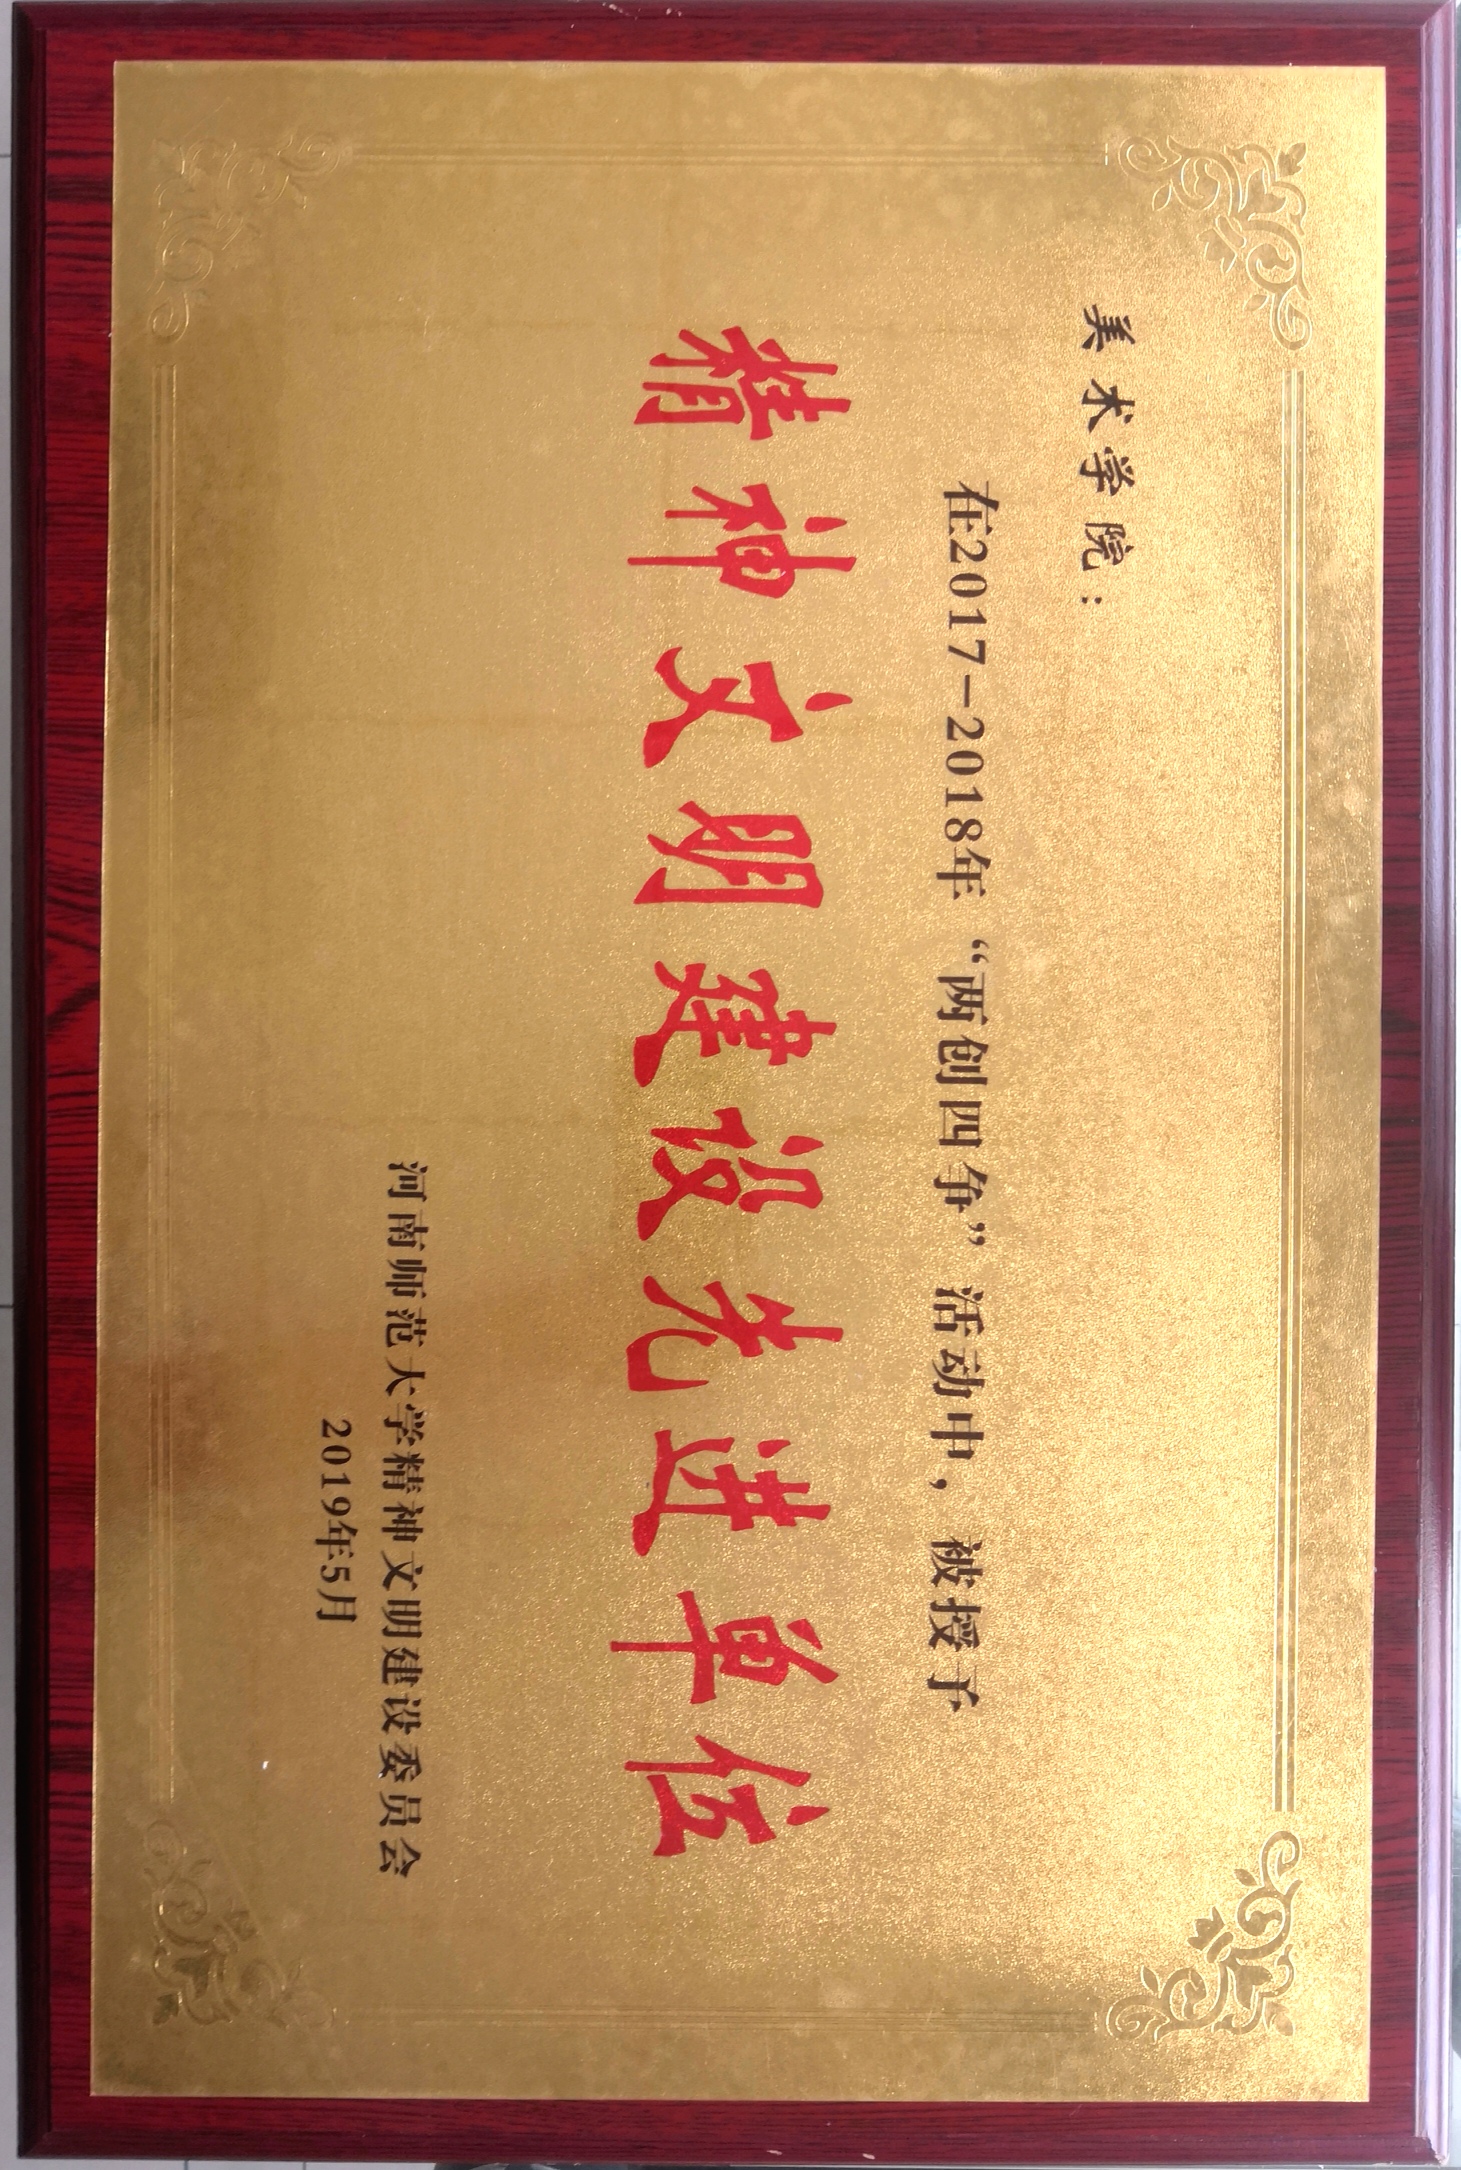 美术学院：
在2017—2018年“两创四争”活动中，被授予
精神文明建设先进单位
河南师范大学精神文明建设委员会
2019年5月